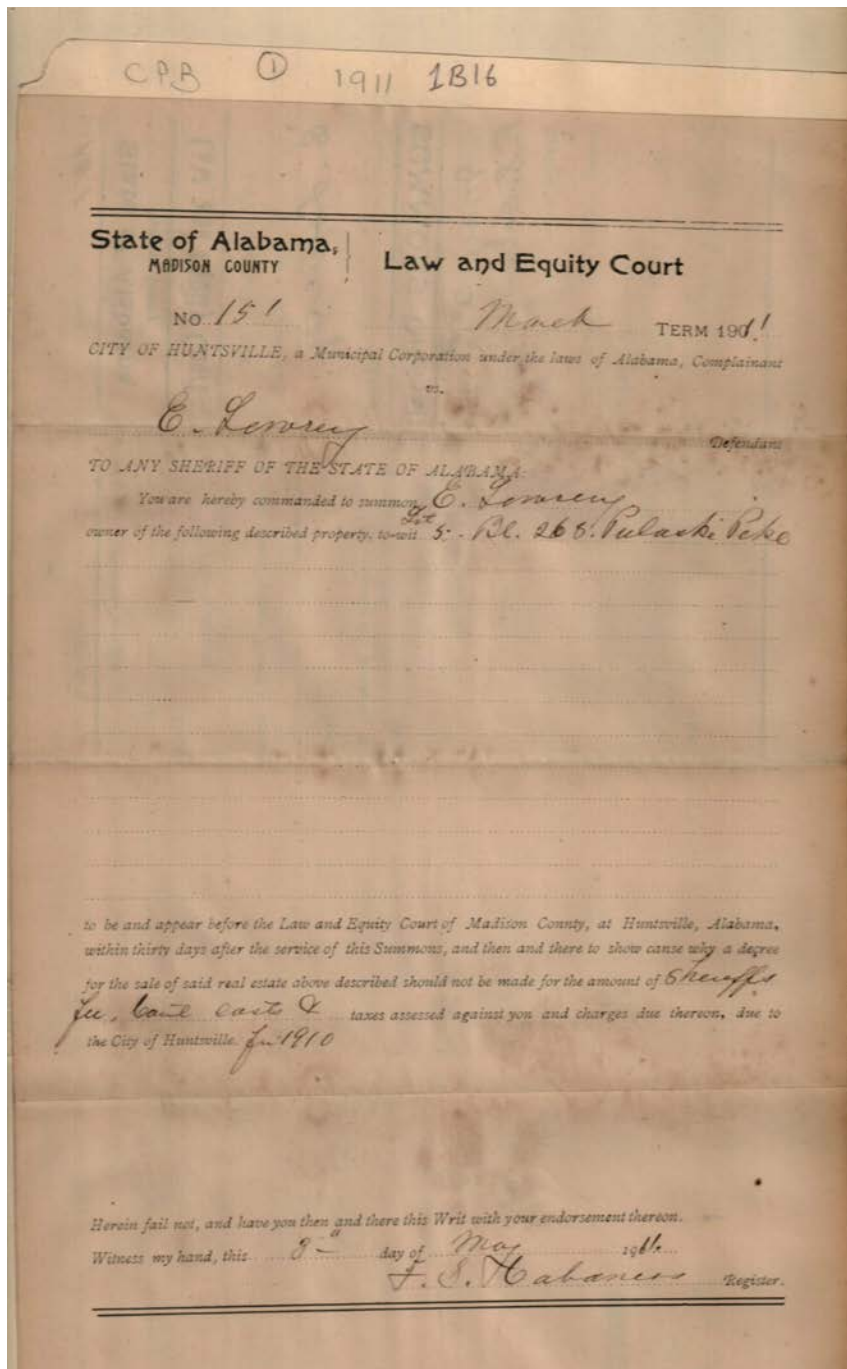 CPB ① 1911 1B16
State of Alabama, Law and Equity Court
MADISON COUNTY
No. 151 March TERM 1911
CITY OF HUNTSVILLE, a Municipal Corporation under the laws of Alabama, Complainant
vs.
E. Lowrey Defendant
TO ANY SHERIFF OF THE STATE OF ALABAMA:
You are hereby commanded to summon E. Lowrey
owner of the following described property, to-wit Lot 5 - Bl. 268. Pulaski Pike
to be and appear before the Law and Equity Court of Madison County, at Huntsville, Alabama,
within thirty days after the service of this Summons, and then and there to show canse why a degree
for the sale of said real estate above described should not be made for the amount of Sheriffs
fee, Court costs & taxes assessed against you and charges due thereon, due to
the City of Huntsville. for 1910
Herein fail not, and have you then and there this Writ with your endorsement thereon.
Witness my hand, this 8 day of May 1911.
F. S. Register.